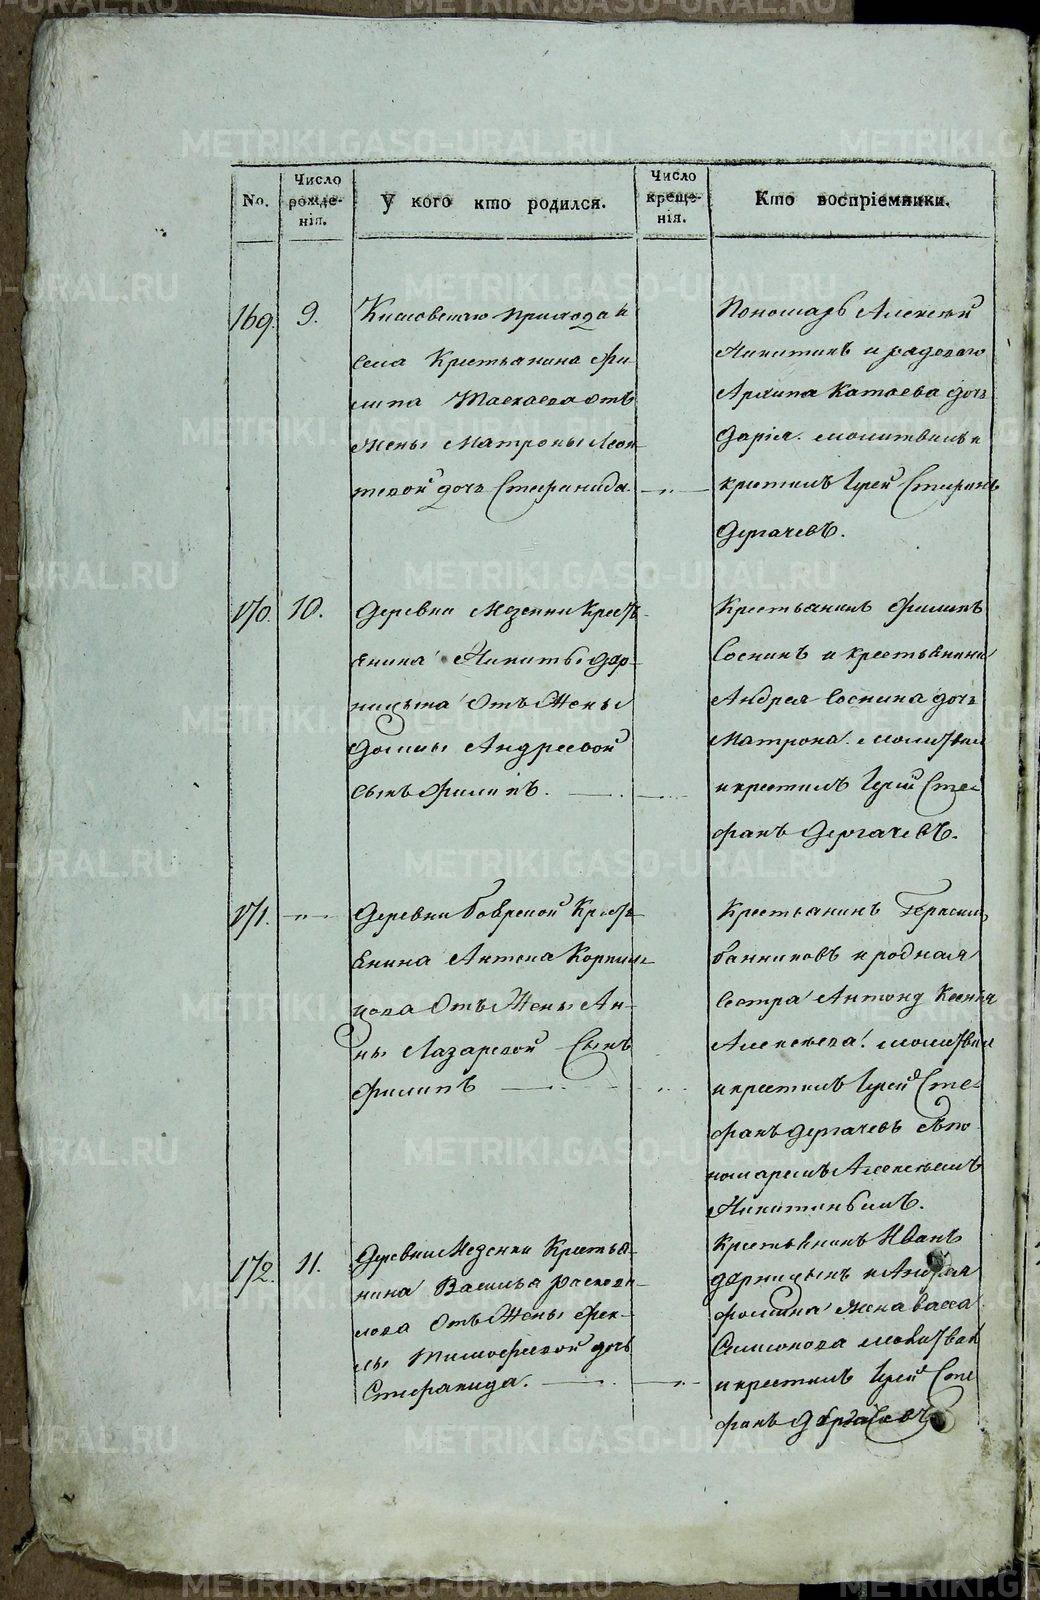 No.
Число рожде-нія.
У кого кто родился.
Число креще-нія.
Кто воспріемники.
169.
9.
прихода и
села Крестьянина Фи
липа отъ
жены Матроны Леон
тевой дочь Стефанида
Пономарь Алексей
Никитинъ и рядоваго
Архипа Катаева дочь
Дарія. молитвилъ и
крестилъ Іерей Стефанъ
Дергачевъ.
170.
10.
Деревни Мезенки Кресть-
янина Никиты Дар-
ницына отъ жены
Домны Андреевой
сынъ Филипъ.
Крестьянинъ Филипъ
Соснинъ и крестьянина
Андрея Соснина дочь
Матрона. молитвил
и крестилъ Іерей Сте
фанъ Дергачевъ.
171.
Деревни Бобровой Кресть
янина Антона Корниль
цова отъ жены Ан-
ны Лазаревой Сынъ
Филипъ
Крестьянинъ Герасимъ
Банниковъ и родная
сестра Антону Ксенья
Алексѣева. молитвил
и крестилъ Іерей Сте-
фанъ Дергачевъ съ по
номаремъ Алексѣемъ
Никитинымъ.
172.
11.
Деревни Мезенки Крестья-
нина Василья
отъ жены Фек-
лы Тимофеевой дочь
Стефанида.
Крестьянинъ Иванъ
Дарницынъ и Андрея
Фомина жена Васса
Симонова молитвил
и крестилъ Іерей Сте
фанъ Дергачевъ
METRIKI.GASO-URAL.RU